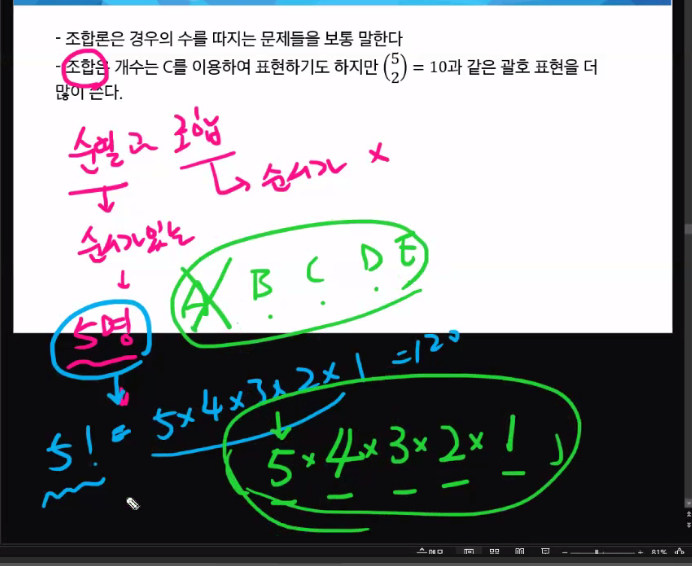 - 조합론은 경우의 수를 따지는 문제들을 보통 말한다
- 조합은 개수는 C를 이용하여 표현하기도 하지만 (5 2) = 10과 같은 괄호 표현을 더
많이 쓴다.
순열과 조합
순서가 ×
순서가있는
A B C D E
5명
5! = 5×4×3×2×1 =120
5×4×3×2×1
81%